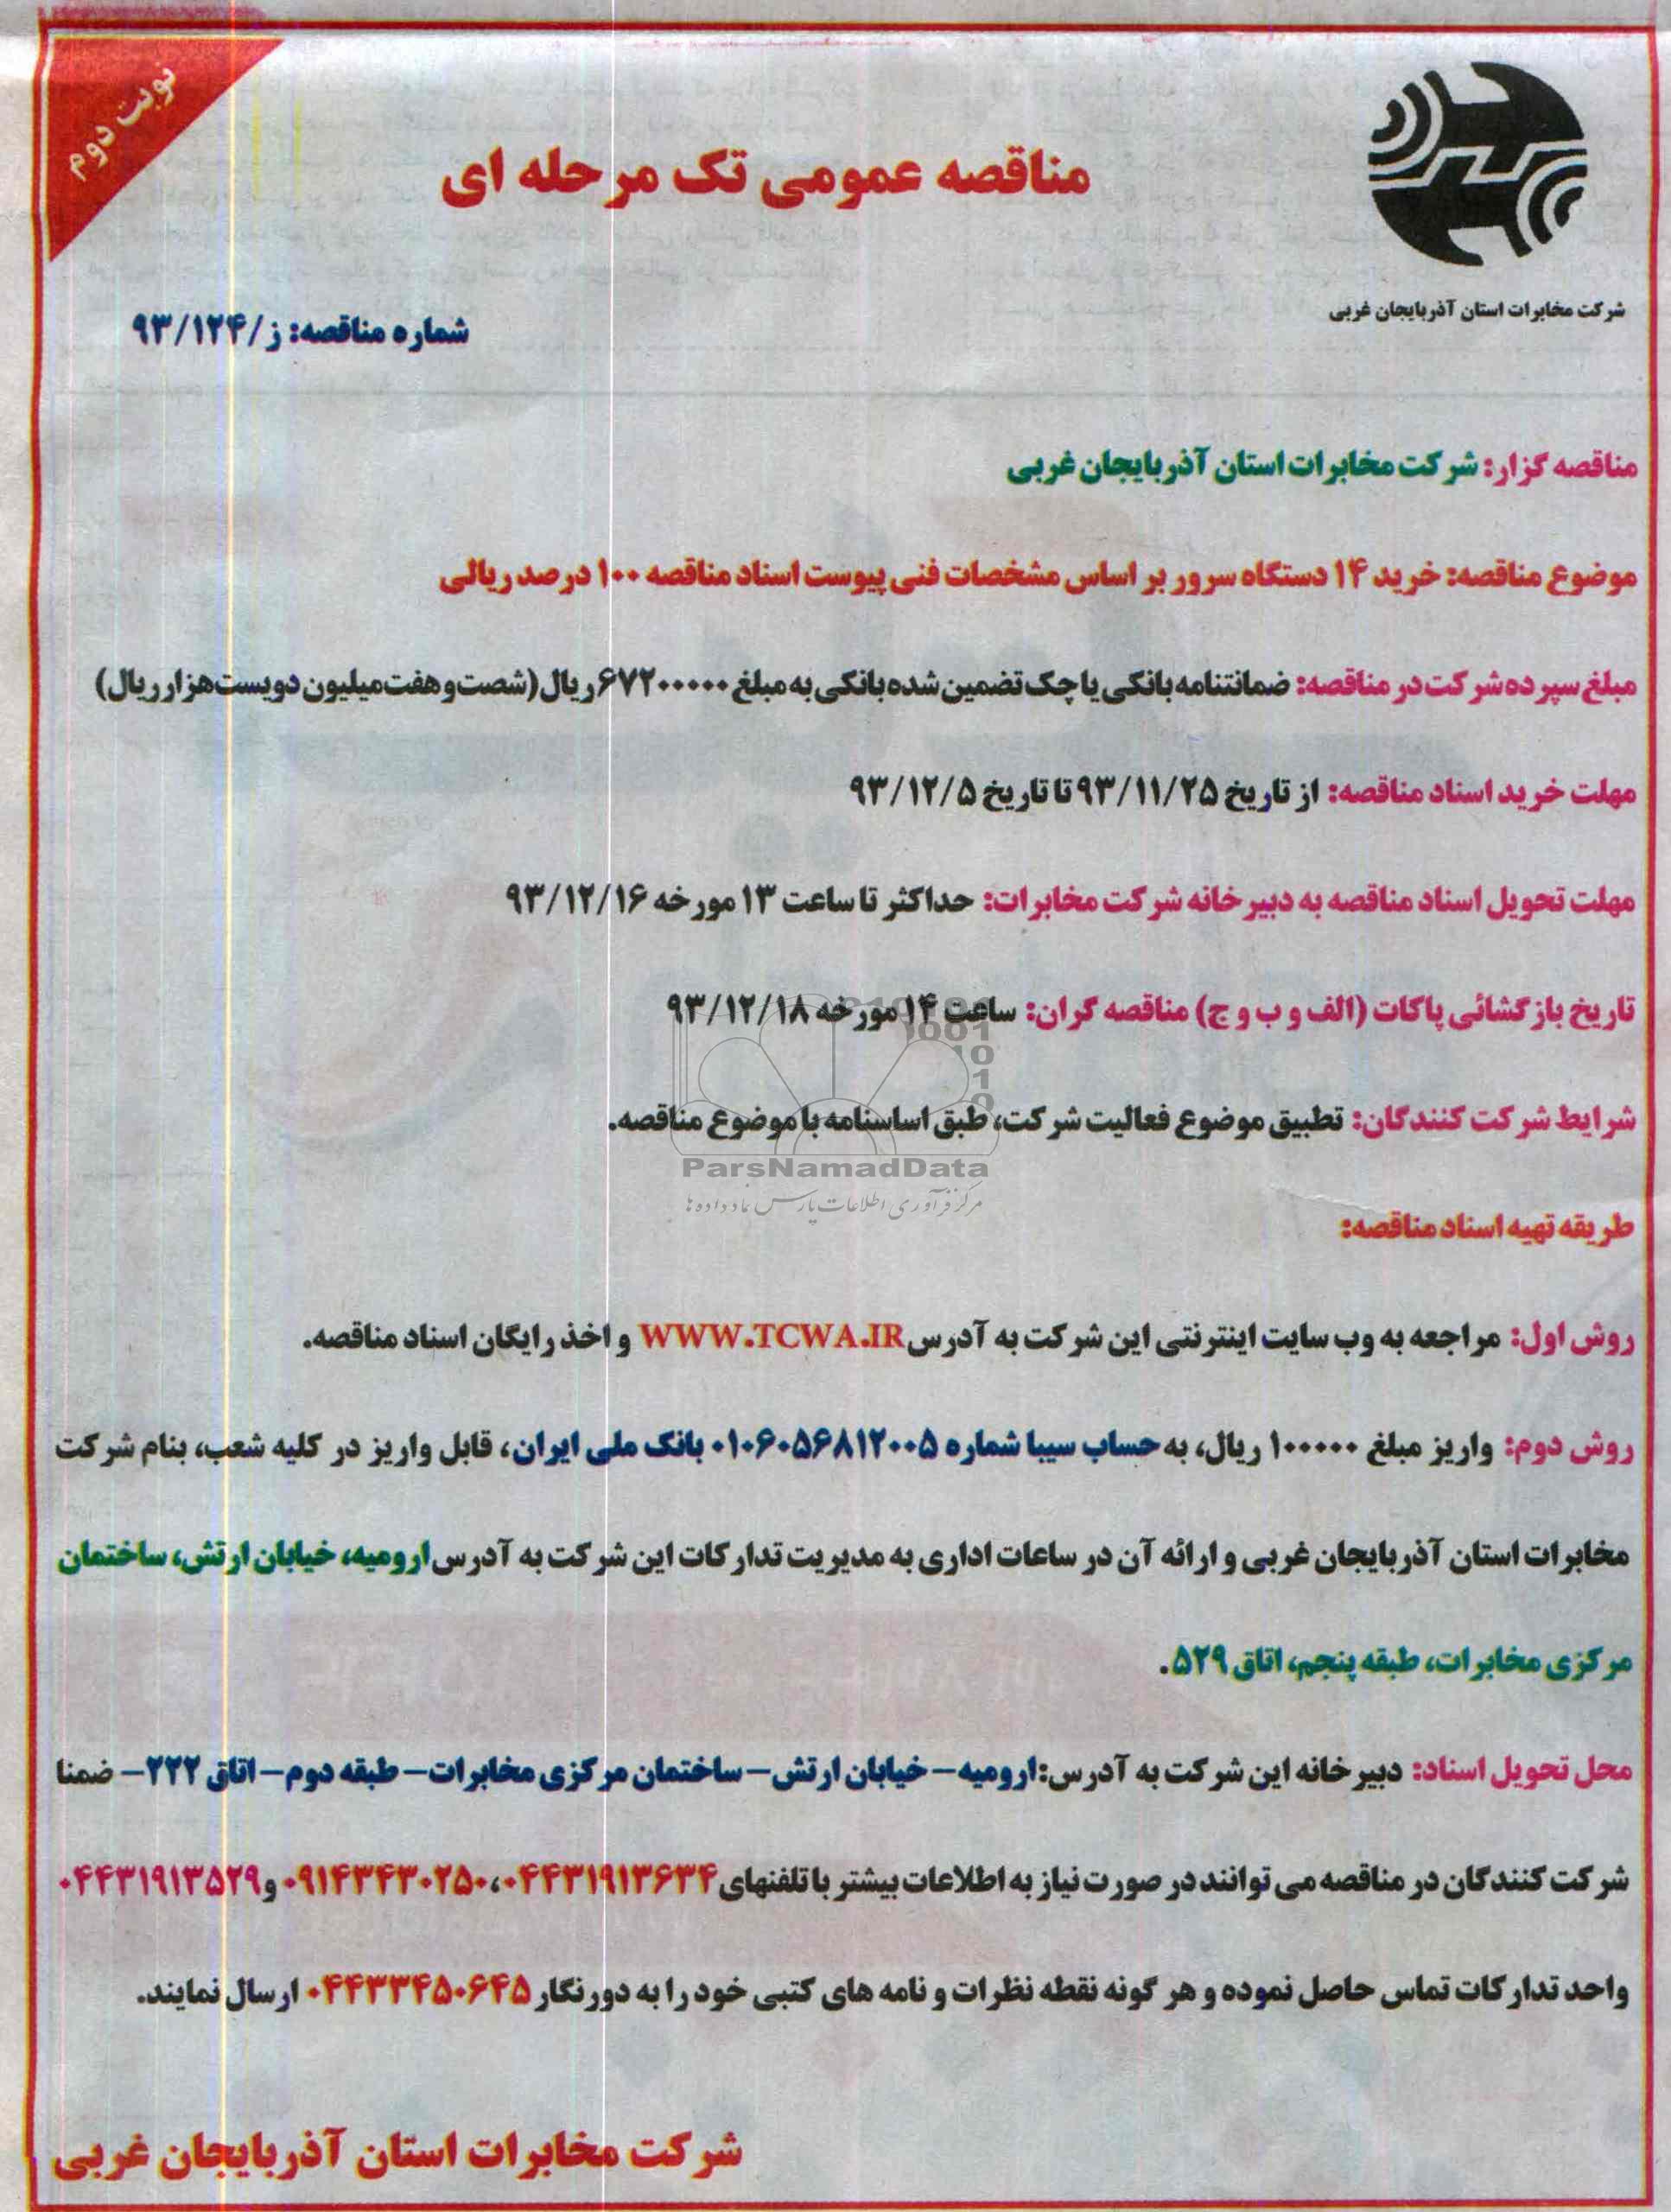 نوبت دوم
مناقصه عمومی تک مرحله ای
شرکت مخابرات استان آذربایجان غربی
شماره مناقصه: ز/۹۳/۱۲۴
مناقصه گزار: شرکت مخابرات استان آذربایجان غربی
موضوع مناقصه: خرید ۱۴ دستگاه سرور بر اساس مشخصات فنی پیوست اسناد مناقصه ۱۰۰ درصد ریالی
مبلغ سپرده شرکت در مناقصه: ضمانتنامه بانکی یا چک تضمین شده بانکی به مبلغ ۶۷۲۰۰۰۰۰ ریال (شصت و هفت میلیون دویست هزار ریال)
مهلت خرید اسناد مناقصه: از تاریخ ۹۳/۱۱/۲۵ تا تاریخ ۹۳/۱۲/۵
مهلت تحویل اسناد مناقصه به دبیرخانه شرکت مخابرات: حداکثر تا ساعت ۱۳ مورخه ۹۳/۱۲/۱۶
تاریخ بازگشائی پاکات (الف و ب و ج) مناقصه گران: ساعت ۱۴ مورخه ۹۳/۱۲/۱۸
شرایط شرکت کنندگان: تطبیق موضوع فعالیت شرکت، طبق اساسنامه با موضوع مناقصه.
ParsNamadData
مرکز فرآوری اطلاعات پارس نماد داده ها
طریقه تهیه اسناد مناقصه:
روش اول: مراجعه به وب سایت اینترنتی این شرکت به آدرس WWW.TCWA.IR و اخذ رایگان اسناد مناقصه.
روش دوم: واریز مبلغ ۱۰۰۰۰۰ ریال، به حساب سیبا شماره ۰۱۰۶۰۵۶۸۱۲۰۰۵ بانک ملی ایران، قابل واریز در کلیه شعب، بنام شرکت
مخابرات استان آذربایجان غربی و ارائه آن در ساعات اداری به مدیریت تدارکات این شرکت به آدرس ارومیه، خیابان ارتش، ساختمان
مرکزی مخابرات، طبقه پنجم، اتاق ۵۲۹.
محل تحویل اسناد: دبیرخانه این شرکت به آدرس: ارومیه - خیابان ارتش - ساختمان مرکزی مخابرات - طبقه دوم - اتاق ۲۲۲ - ضمنا
شرکت کنندگان در مناقصه می توانند در صورت نیاز به اطلاعات بیشتر با تلفنهای ۰۴۴۳۱۹۱۳۶۳۴، ۰۹۱۴۳۴۳۰۲۵۰ و ۰۴۴۳۱۹۱۳۵۲۹
واحد تدارکات تماس حاصل نموده و هر گونه نقطه نظرات و نامه های کتبی خود را به دورنگار ۰۴۴۳۳۴۵۰۶۴۵ ارسال نمایند.
شرکت مخابرات استان آذربایجان غربی